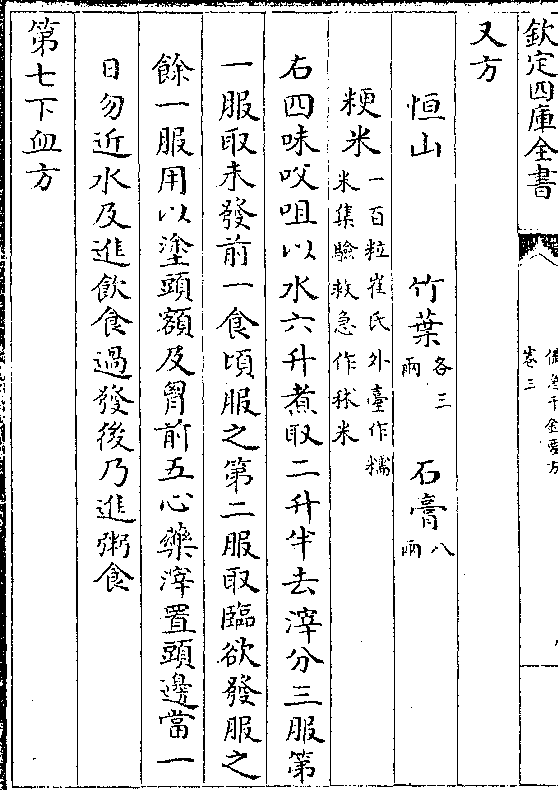 欽定四庫全書
卷三
又方
恒山 竹葉各三兩 石膏八兩
粳米一百粒崔氏外臺作糯米集驗救急作秫米
右四味㕮咀以水六升煮取二升半去滓分三服第
一服取未發前一食頃服之第二服取臨欲發服之
餘一服用以塗頭額及胷前五心藥滓置頭邊當一
日勿近水及進飲食過發後乃進粥食
第七下血方